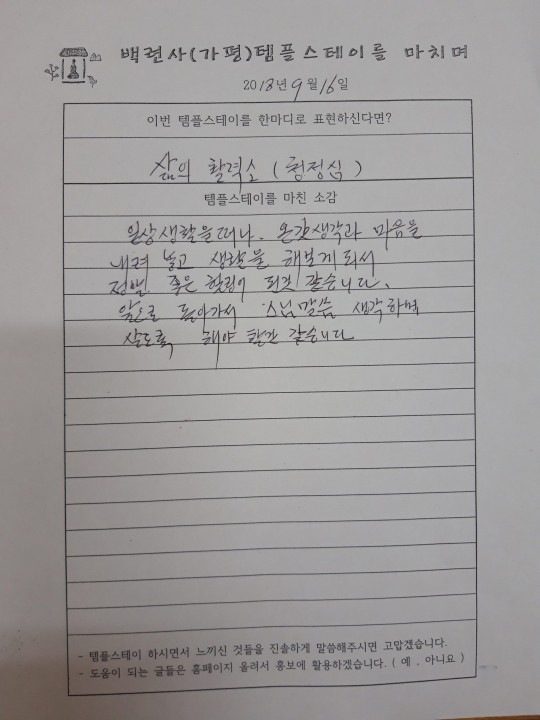 백련사(가평)템플스테이를 마치며
2018년 9월 16일
이번 템플스테이를 한마디로 표현하신다면?
삶의 활력소 ( 청정심 )
템플스테이를 마친 소감
일상생활을 떠나. 온갖생각과 마음을
내려 놓고 생활을 해보게 되서
정말 좋은 힐링이 된것 같습니다.
앞으로 돌아가서 스님말씀 생각하며
살도록 해야 할것 같습니다
- 템플스테이 하시면서 느끼신 것들을 진솔하게 말씀해주시면 고맙겠습니다.
- 도움이 되는 글들은 홈페이지 올려서 홍보에 활용하겠습니다. ( 예 . 아니요 )